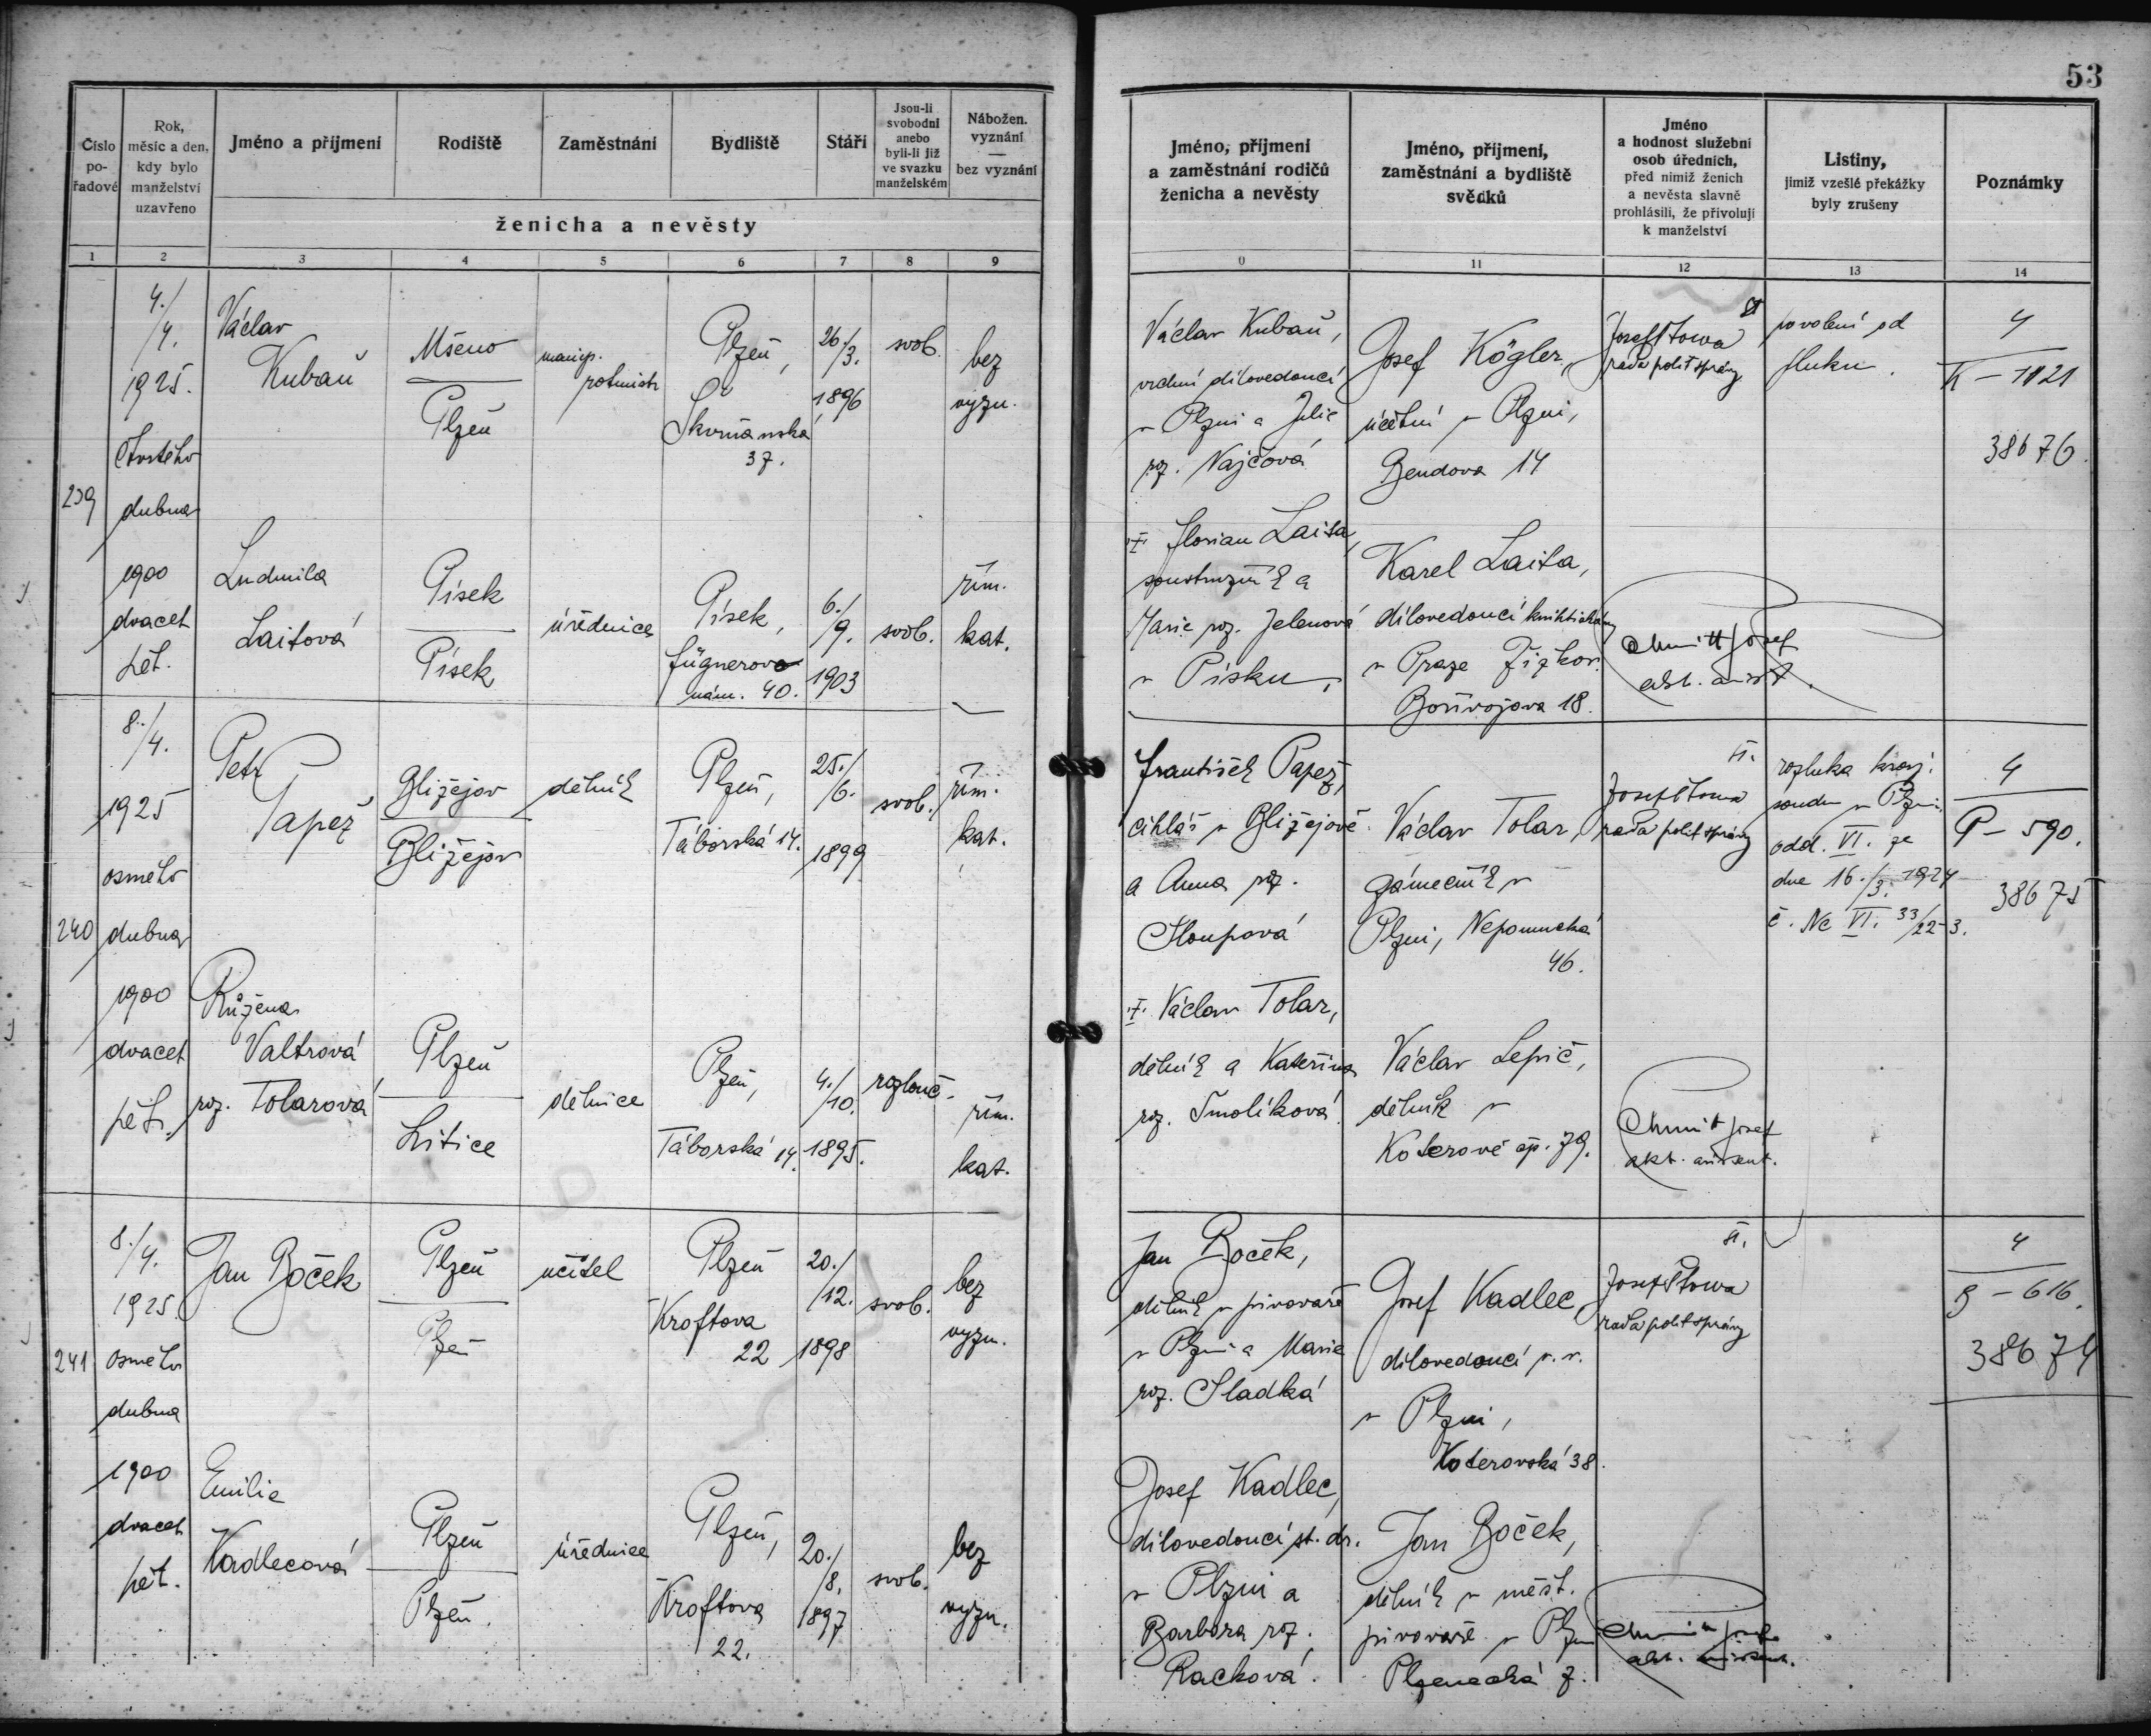 53
Číslo
po-
řadové
Rok,
měsíc a den,
kdy bylo
manželství
uzavřeno
Jméno a příjmení
Rodiště
Zaměstnání
Bydliště
Stáří
Jsou-li
svobodni
anebo
byli-li již
ve svazku
manželském
Nábožen.
vyznání
—
bez vyznání
ženicha a nevěsty
1 2 3 4 5 6 7 8 9
Jméno, příjmení
a zaměstnání rodičů
ženicha a nevěsty
Jméno, příjmení,
zaměstnání a bydliště
svědků
Jméno
a hodnost služební
osob úředních,
před nimiž ženich
a nevěsta slavně
prohlásili, že přivolují
k manželství
Listiny,
jimiž vzešlé překážky
byly zrušeny
Poznámky
0 11 12 13 14
239
4./
/4.
1925.
čtvrtého
dubna
1900
dvacet
pět.
Václav
Kubaň
Mšeno
Plzeň
manip.
rotmistr
Plzeň,
Skvrňanská
37.
26./
/3.
1896
svob.
bez
vyzn.
Ludmila
Laitová
Písek
Písek
úřednice
Písek,
Fügnerovo
nám. 40.
6./
/9.
1903
svob.
řím.
kat.
Václav Kubaň,
vrchní dílovedoucí
v Plzni a Julie
roz. Najčová
Josef Kögler,
účetní v Plzni,
Bendova 14
Josef Štowa
rada polit správy
povolení od
pluku.
4
K – 1121
38676.
Florian Laita,
soustružník a
Marie roz. Jelenová
v Písku,
Karel Laita,
dílovedoucí knihtiskárny
v Praze Žižkov.
Bořivojova 18.
Chmitt Josef
akt. asist.
240
8./
/4.
1925
osmého
dubna
1900
dvacet
pět.
Petr
Papež
Blížejov
Blížejov
dělník
Plzeň,
Táborská 14.
25./
/6.
1899
svob.
řím.
kat.
Růžena
Valtrová
roz. Tolarová
Plzeň
Litice
dělnice
Plzeň,
Táborská 14.
4./
/10.
1895.
rozlouč.
řím.
kat.
František Papež,
cihlář v Blížejově
a Anna roz.
Sloupová
Václav Tolar,
zámečník v
Plzni, Nepomucká
46.
Josef Štowa
rada polit správy
rozluka kraj.
soudu v Plzni
odd. VI. ze
dne 16./3. 1924
č. Nc VI. 33/22-3.
4
P – 590.
38675
Václav Tolar,
dělník a Kateřina
roz. Smolíková
Václav Lepič,
dělník v
Koterově čp. 79.
Chmitt Josef
akt. assistent.
241
8./
/4.
1925
osmého
dubna
1900
dvacet
pět.
Jan Boček
Plzeň
Plzeň
učitel
Plzeň
Kroftova
22
20./
/12.
1898
svob.
bez
vyzn.
Emilie
Kadlecová
Plzeň
Plzeň.
úřednice
Plzeň,
Kroftova
22.
20./
/8.
1897
svob.
bez
vyzn.
Jan Boček,
dělník v pivovaře
v Plzni a Marie
roz. Sladká
Josef Kadlec,
dílovedoucí v. v.
v Plzni,
Koterovská 38.
Josef Štowa
rada polit správy
4
B – 616.
38674
Josef Kadlec,
dílovedoucí st. dr.
v Plzni a
Barbora roz.
Racková.
Jan Boček,
dělník v měšt.
pivovaře v Plzni
Plzenecká 7.
Chmitt Josef
akt. assistent.